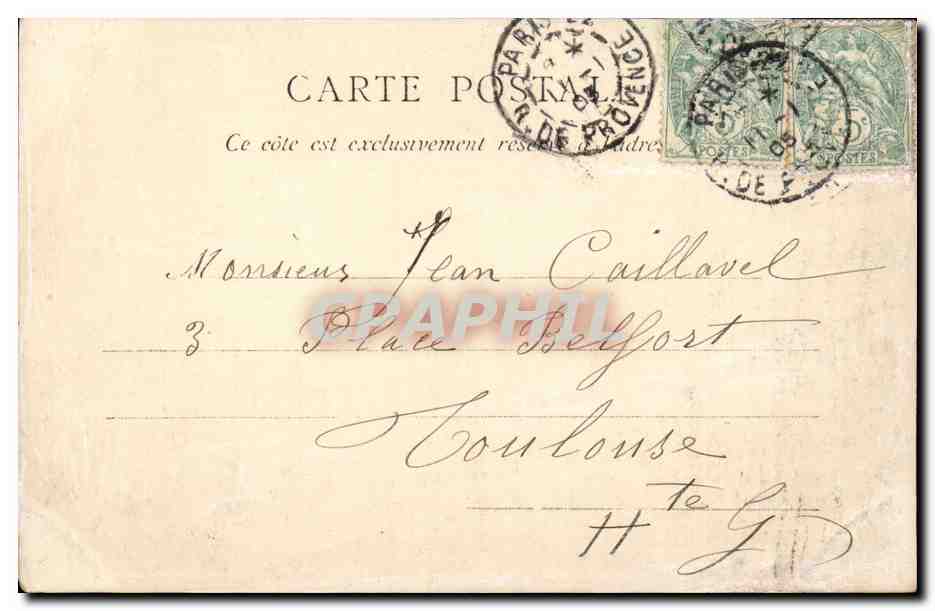 CARTE POSTALE
Ce côté est exclusivement réservé à l'adresse
PARIS 22
R. DE PROVENCE
PARIS
R. DE
5c
POSTES
POSTES
Monsieur Jean Caillavel
3 Place Belfort
CPAPHIL
Toulouse
Hte G